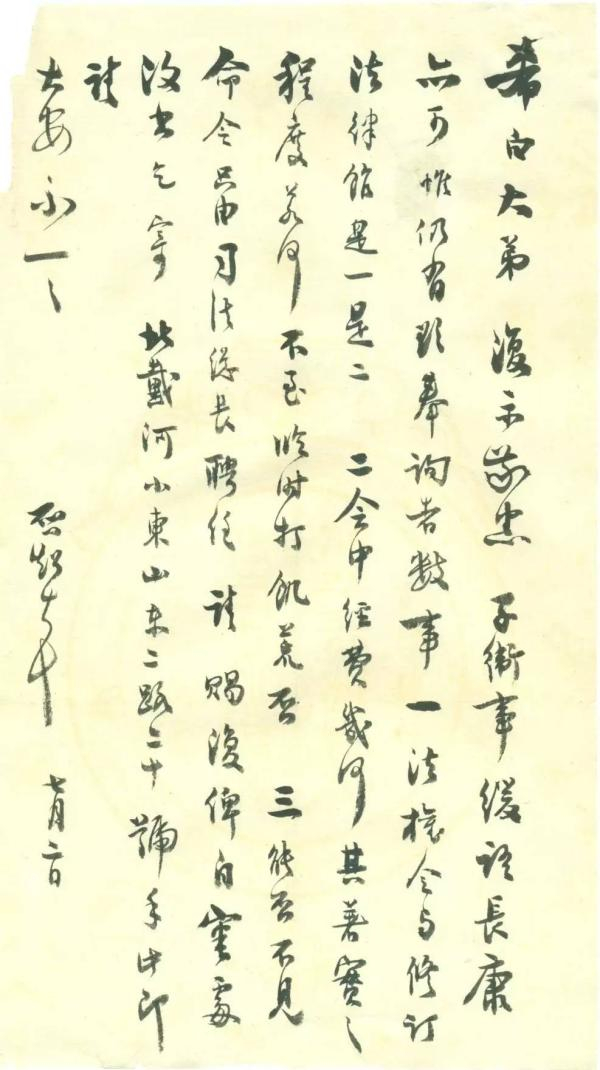 希白大弟 復示敬悉 子衡事緩語長康
亦可惟仍有欲奉詢者數事 一法權會与修訂
法律館是一是二 二会中經費幾何其著實之
程度若何不至临时打飢荒否 三能否不見
命令只由司法總長聘任 請賜復俾自審處
改書乞寄北戴河小東山東二路二十號手此即
請
大安不一一
啟超 七月二日